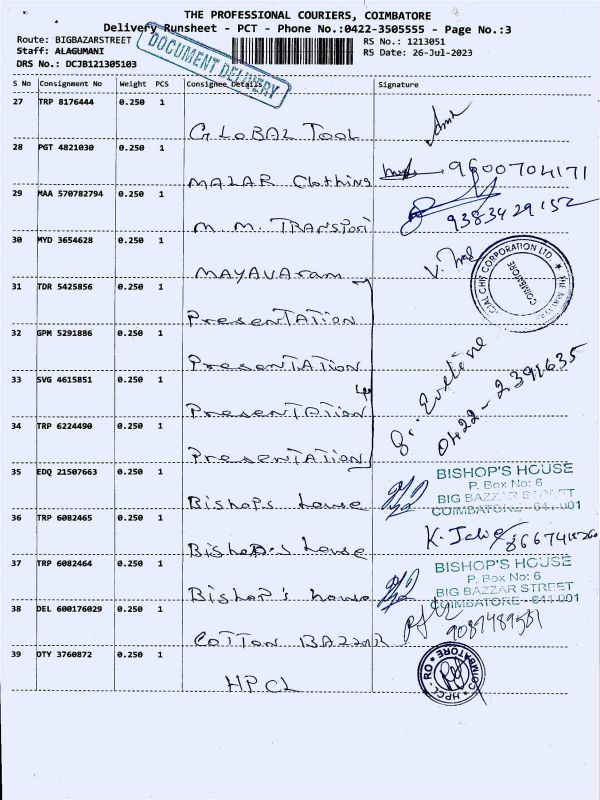 THE PROFESSIONAL COURIERS, COIMBATORE
Delivery Runsheet - PCT - Phone No.:0422-3505555 - Page No.:3
Route: BIGBAZARSTREET
RS No.: 1213051
Staff: ALAGUMANI
RS Date: 26-Jul-2023
DRS No.: DCJB121305103
DOCUMENT DELIVERY
S No Consignment No Weight PCS Consignee Details Signature
27 TRP 8176444 0.250 1
GLOBAL TOOL
28 PGT 4821030 0.250 1
MALAR Clothing 9600704171
29 MAA 570782794 0.250 1
M.M. TRANSPORT 9383429152
30 MYD 3654628 0.250 1
MAYAVAram
CHIT CORPORATION LTD.
COIMBATORE
31 TDR 5425856 0.250 1
PresenTATION
32 GPM 5291886 0.250 1
PresenTATION
33 SVG 4615851 0.250 1
PresenTATION
0422-2391635
34 TRP 6224490 0.250 1
PresenTATION
35 EDQ 21507663 0.250 1
Bishop's house
BISHOP'S HOUSE
P. Box No: 6
BIG BAZZAR STREET
COIMBATORE - 641 001
36 TRP 6082465 0.250 1
Bishop's house
37 TRP 6082464 0.250 1
Bishop's house
BISHOP'S HOUSE
P. Box No: 6
BIG BAZZAR STREET
COIMBATORE - 641 001
38 DEL 600176029 0.250 1
COTTON BAZZAR
9087489581
39 DTY 3760872 0.250 1
HPCL
HPCL - RO COIMBATORE